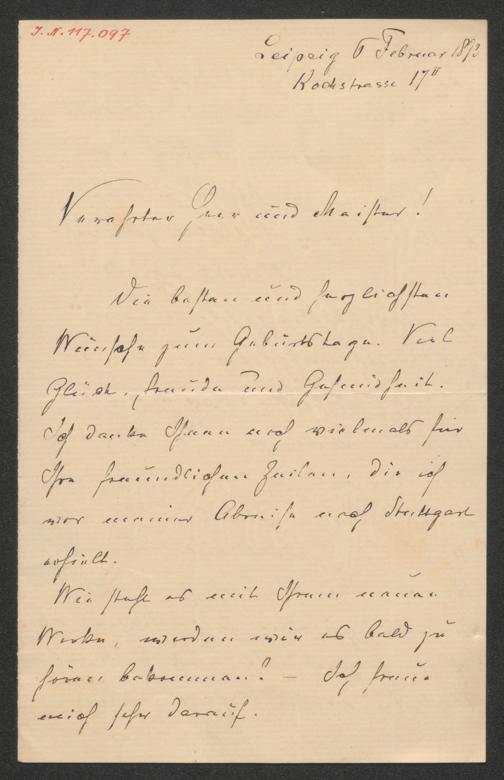 I.N. 117.097
Leipzig 6 Februar 1893
Kochstrasse 17 II
Verehrter Herr und Meister!
Die besten und herzlichsten
Wünsche zum Geburtstage. Viel
Glück, Freude und Gesundheit.
Ich danke Ihnen noch vielmals für
Ihre freundlichen Zeilen, die ich
vor meiner Abreise nach Stuttgart
erhielt.
Wie steht es mit Ihrem neuen
Werke, werden wir es bald zu
hören bekommen? – Ich freue
mich sehr darauf.